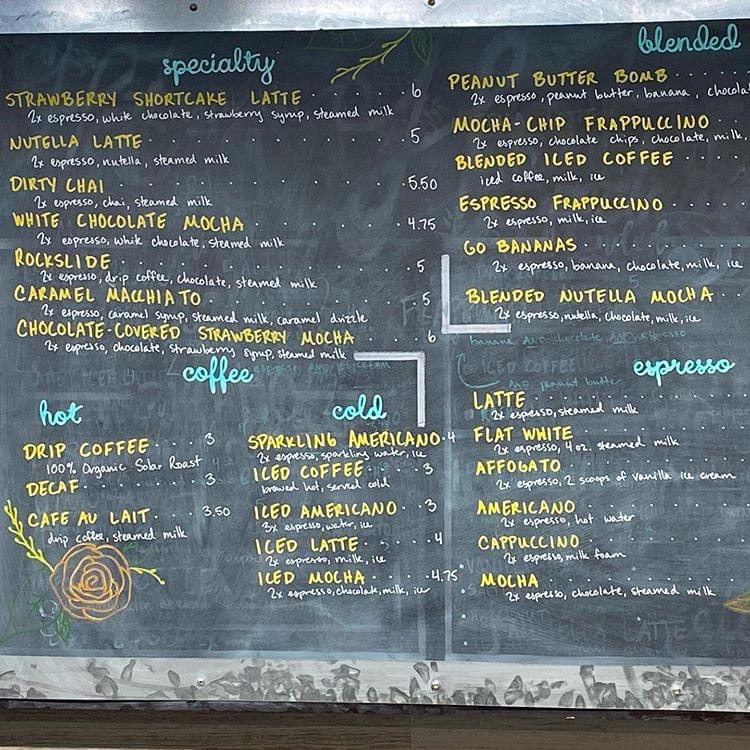 specialty
STRAWBERRY SHORTCAKE LATTE 6
2x espresso, white chocolate, strawberry syrup, steamed milk
NUTELLA LATTE 5
2x espresso, nutella, steamed milk
DIRTY CHAI 5.50
2x espresso, chai, steamed milk
WHITE CHOCOLATE MOCHA 4.75
2x espresso, white chocolate, steamed milk
ROCKSLIDE 5
2x espresso, drip coffee, chocolate, steamed milk
CARAMEL MACCHIATO 5
2x espresso, caramel syrup, steamed milk, caramel drizzle
CHOCOLATE-COVERED STRAWBERRY MOCHA 6
2x espresso, chocolate, strawberry syrup, steamed milk
coffee
hot
DRIP COFFEE 3
100% Organic Solar Roast
DECAF 3
CAFE AU LAIT 3.50
drip coffee, steamed milk
cold
SPARKLING AMERICANO 4
2x espresso, sparkling water, ice
ICED COFFEE 3
brewed hot, served cold
ICED AMERICANO 3
3x espresso, water, ice
ICED LATTE 4
2x espresso, milk, ice
ICED MOCHA 4.75
2x espresso, chocolate, milk, ice
blended
PEANUT BUTTER BOMB
2x espresso, peanut butter, banana, chocolat
MOCHA-CHIP FRAPPUCCINO
2x espresso, chocolate chips, chocolate, milk,
BLENDED ICED COFFEE
iced coffee, milk, ice
ESPRESSO FRAPPUCCINO
2x espresso, milk, ice
GO BANANAS
2x espresso, banana, chocolate, milk, ice
BLENDED NUTELLA MOCHA
2x espresso, nutella, chocolate, milk, ice
espresso
LATTE
2x espresso, steamed milk
FLAT WHITE
2x espresso, 4 oz. steamed milk
AFFOGATO
2x espresso, 2 scoops of vanilla ice cream
AMERICANO
2x espresso, hot water
CAPPUCCINO
2x espresso, milk foam
MOCHA
2x espresso, chocolate, steamed milk